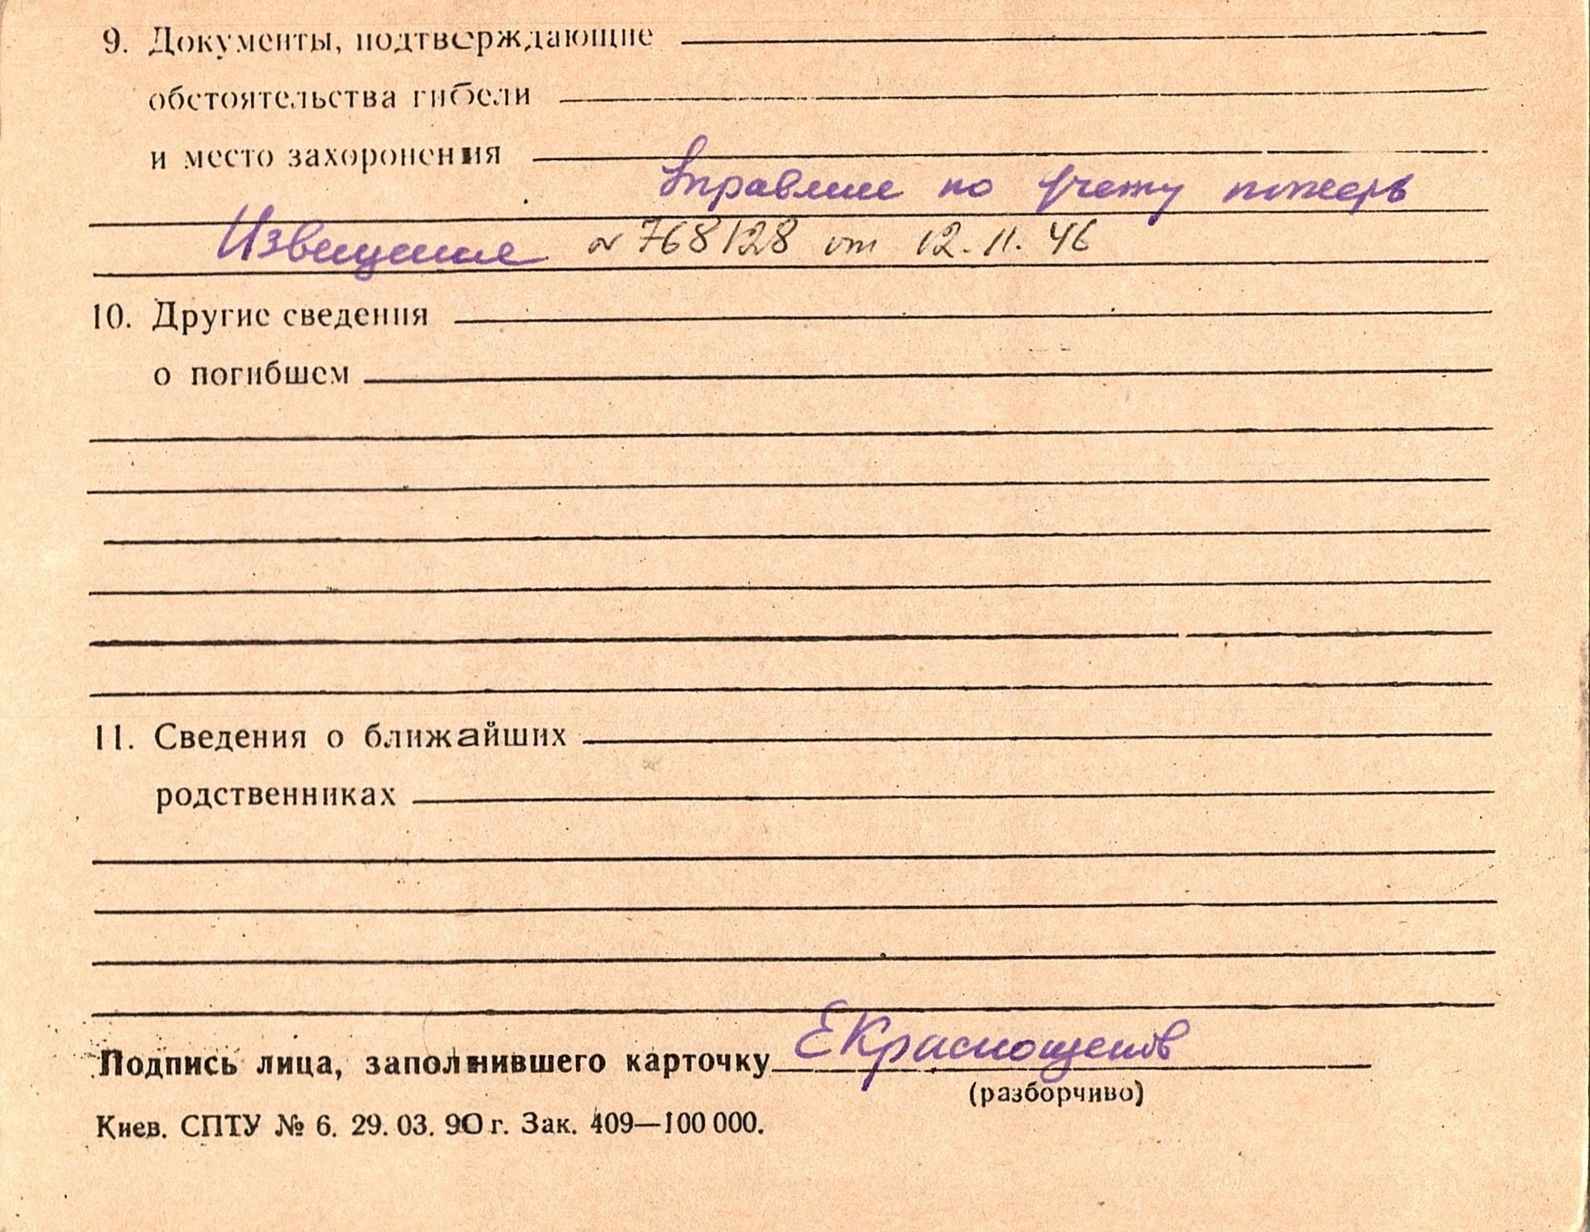 9. Документы, подтверждающие
обстоятельства гибели
и место захоронения
по учету потерь
Извещение № 768128 от 12.11.46
10. Другие сведения
о погибшем
11. Сведения о ближайших
родственниках
Подпись лица, заполнившего карточку ЕКраснощеков
(разборчиво)
Киев. СПТУ № 6. 29.03.90 г. Зак. 409—100 000.